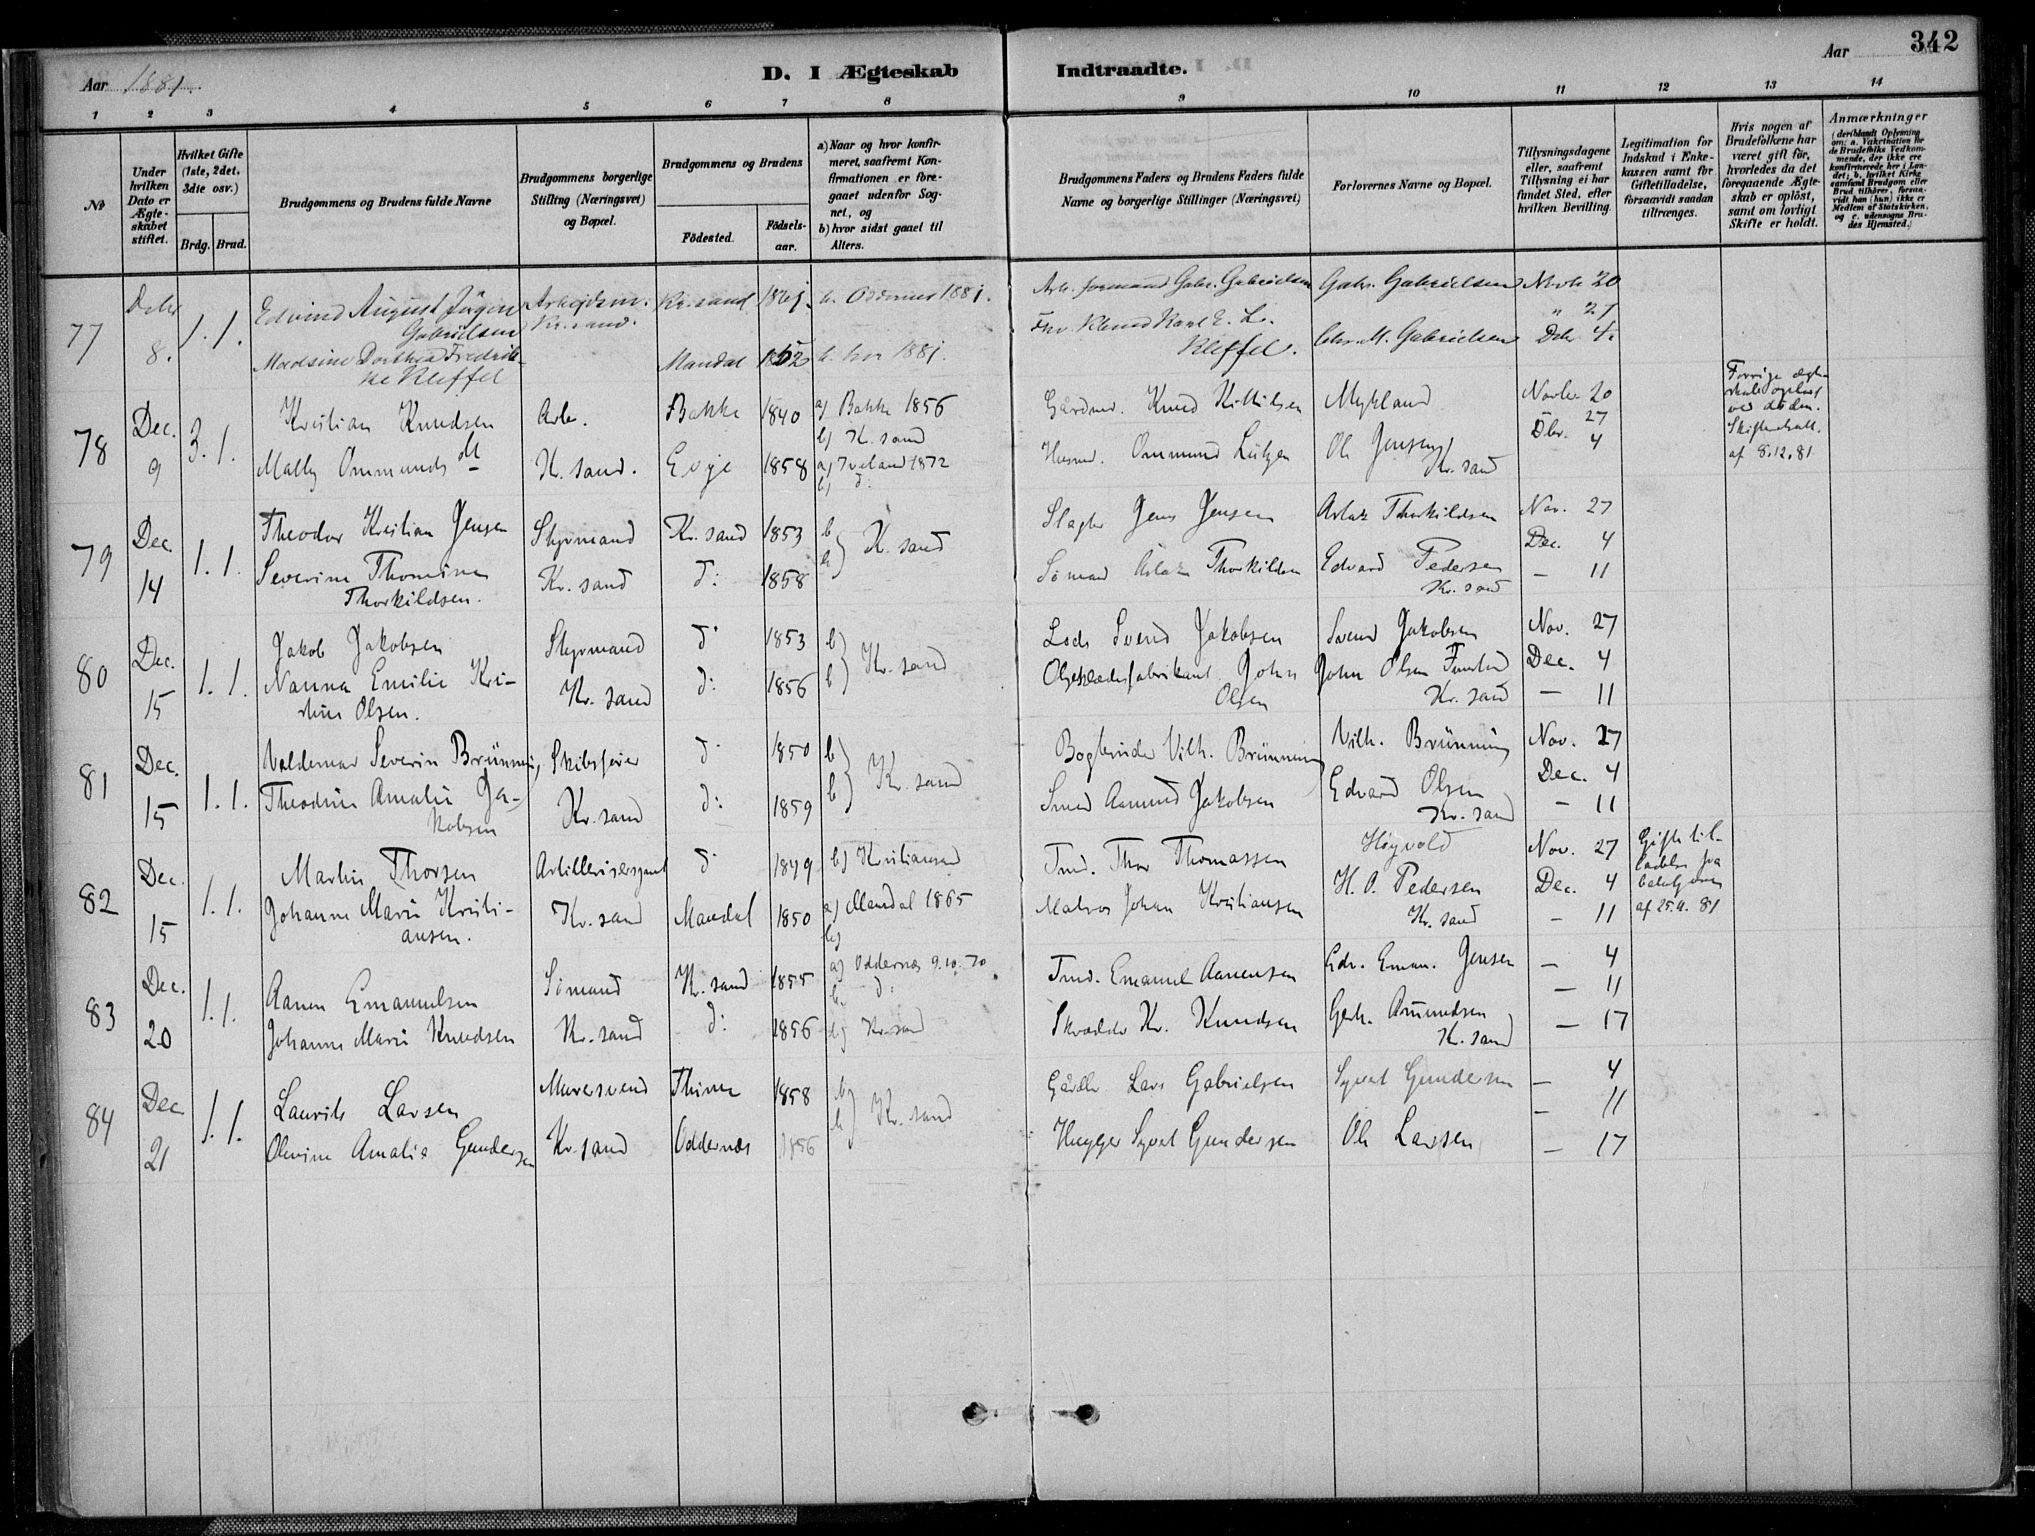 342
Aar 1881.
D. I Ægteskab Indtraadte.
Aar
1 2 3 4 5 6 7 8 9 10 11 12 13 14
No
Under hvilken Dato er Ægteskabet stiftet.
Hvilket Gifte (1ste, 2det, 3die osv.)
Brdg. Brud.
Brudgommens og Brudens fulde Navne
Brudgommens borgerlige Stilling (Næringsvei) og Bopæl.
Brudgommens og Brudens
Födested. Födselsaar.
a) Naar og hvor konfirmeret, saafremt Konfirmationen er foregaaet udenfor Sognet, og
b) hvor sidst gaaet til Alters.
Brudgommens Faders og Brudens Faders fulde Navne og borgerlige Stillinger (Næringsvei)
Forlovernes Navne og Bopæl.
Tillysningsdagene eller, saafremt Tillysning ei har fundet Sted, efter hvilken Bevilling.
Legitimation for Indskud i Enkekassen samt for Giftetilladelse, forsaavidt saadan tiltrænges.
Hvis nogen af Brudefolkene har været gift før, hvorledes da det foregaaende Ægteskab er oplöst, samt om lovligt Skifte er holdt.
Anmærkninger (deriblandt Oplysning om: a. Vakcination for de Brudefolks Vedkommende, der ikke ere konfirmerede her i Landet; b. hvilket Kirkesamfund Brudgom eller Brud tilhører, forsaavidt han (hun) ikke er Medlem af Statskirken, og c. udensogns Brudes Hjemsted.)
77 Decbr 8. 1. 1. Edvind August Jörgen Gabrielsen Arbejdsm. Kr.sand. Kr.sand b. Oddernes 1881. Arb. formand Gabr. Gabrielsen Gabr. Gabrielsen Novb 20
" 27
Madsine Dorthea Fredrikke Kleffel Mandal b. her 1881. Kleffel. Chr. M. Gabrielsen Dcbr 4.
78 Dec. 9 3. 1. Kristian Knudsen Arb. Bakke 1840 a) Bakke 1856 b) K. sand Gårdmd. Knud Kittilsen Mykland Novbr. 20
27
Malby Ommunds dt K. sand. Evje 1858 a) Iveland 1872 b) d: Husmd. Ommund Ole Jensen Kr. sand Dbr. 4
Forrige ægteskab opløst ved døden. Skifteattest af 8.12.81
79 Dec. 14 1. 1. Theodor Kristian Jensen Styrmand Kr. sand 1853 b Slagter Jens Jensen Aslak Thorkildsen Nov. 27
Dec. 4
Severine Thomine Thorkildsen. Kr. sand d: 1858 b K. sand Sömand Aslak Thorkildsen Edvard Pedersen Kr. sand — 11
80 Dec. 15 1. 1. Jakob Jakobsen Styrmand d: 1853 b) Lods Svend Jakobsen Svend Jakobsen Nov. 27
Dec. 4
Nanna Emilie Kristine Olsen. Kr. sand d: 1856 b Kr. sand Oljeklædefabrikant John Olsen John Olsen Kr. sand — 11
81 Dec. 15 1. 1. Valdemar Severin Brünning Skibsfører d: 1850 b Bogbinder Vilh. Brünning Vilh. Brünning Nov. 27
Dec. 4
Theodine Amalie Jakobsen Kr. sand d: 1859 b Kr. sand Smed Aamund Jakobsen Edvard Olsen Kr. sand — 11
82 Dec. 15 1. 1. Martin Thorsen Artillerisersjant d: 1849 b) Kristiansand Tmd. Thor Thomassen Høyvold Nov. 27
Johanne Marie Kristiansen. Kr. sand Mandal 1850 a) Mandal 1865 b) Matros Johan Kristiansen H. P. Pedersen Kr. sand Dec. 4
— 11
Giftetilladelse fra af 25.11.81
83 Dec. 20 1. 1. Aanen Emanuelsen Sömand K. sand 1855 a) Oddernæs 9.10.70 b. d: Tmd. Emanuel Aanensen Edv. Eman. Jensen — 4
— 11
Johanne Marie Knudsen Kr. sand d: 1856 b) Kr.sand Skrædder Kr. Knudsen Gerh. Amundsen K. sand — 17
84 Dec 21 1. 1. Laurits Larsen Muresvend 1858 b Lars Gabrielsen Syvert Gundersen — 4
— 11
Olevine Amalie Gundersen Kr. sand Oddernæs 1856 b Kr. sand Hugger Syvert Gundersen Ole Larsen — 17